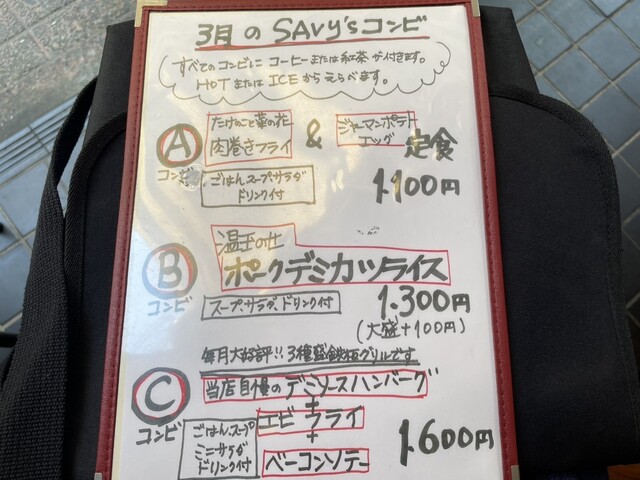 3月のSAvy'sコンビ
すべてのコンビにコーヒーまたは紅茶が付きます。
HOTまたはICEからえらべます。
Aコンビ
たけのこと菜の花
肉巻きフライ
&
ジャーマンポテト
エッグ
定食
ごはん、スープ、サラダ
ドリンク付
1,100円
Bコンビ
温玉のせ
ポークデミカツライス
スープ、サラダ、ドリンク付
1.300円
(大盛+100円)
毎月大好評!!3種盛鉄板グリルです
Cコンビ
当店自慢のデミソースハンバーグ
+
エビフライ
+
ベーコンソテー
ごはん、スープ
ミニサラダ
ドリンク付
1.600円